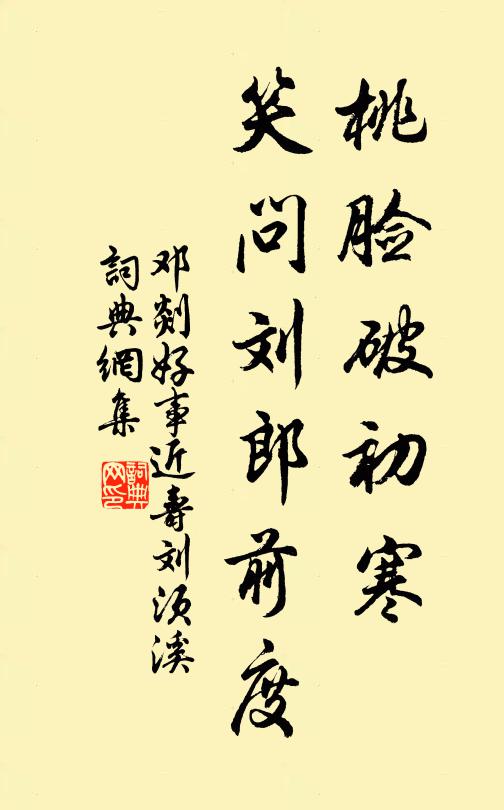 桃脸破初寒
笑问刘郎前度
邓剡好事近寿刘须溪
詞典網集
詞典網印